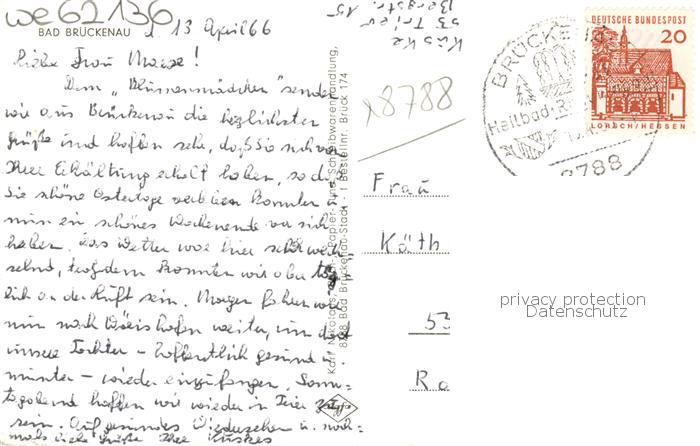 we62136
BAD BRÜCKENAU
d 13 April 66
Liebe Frau Maese!
Dem „Blumenmädchen" senden
wir aus Brückenau die herzlichsten
Grüße und hoffen sehr, daß Sie sich von
Ihrer Erkältung erholt haben, so daß
Sie schöne Ostertage verleben konnten u.
nun ein schönes Wochenende vor sich
haben. Das Wetter war hier sehr wech
selnd, trotzdem konnten wir aber täg
lich an der Luft sein. Morgen fahren wir
nun nach Wörishofen weiter, um dort
unsere Tochter – hoffentlich gesund u.
munter – wieder einzufangen. Sonn-
tagabend hoffen wir wieder in Trier zu
sein. Auf gesundes Wiedersehen u. noch-
mals viele Grüße Ihre Kuskes
Karl Nikolaus, Papier- und Schreibwarenhandlung,
8788 Bad Brückenau-Stadt - 1 Bestellnr. Brück 174
Kuske
53 Trier
Bergstr. 15
18788
BRÜCKEN
Heilbad
8788
DEUTSCHE BUNDESPOST
20
LORSCH/HESSEN
Frau
Käth
53
Ra
privacy protection
Datenschutz